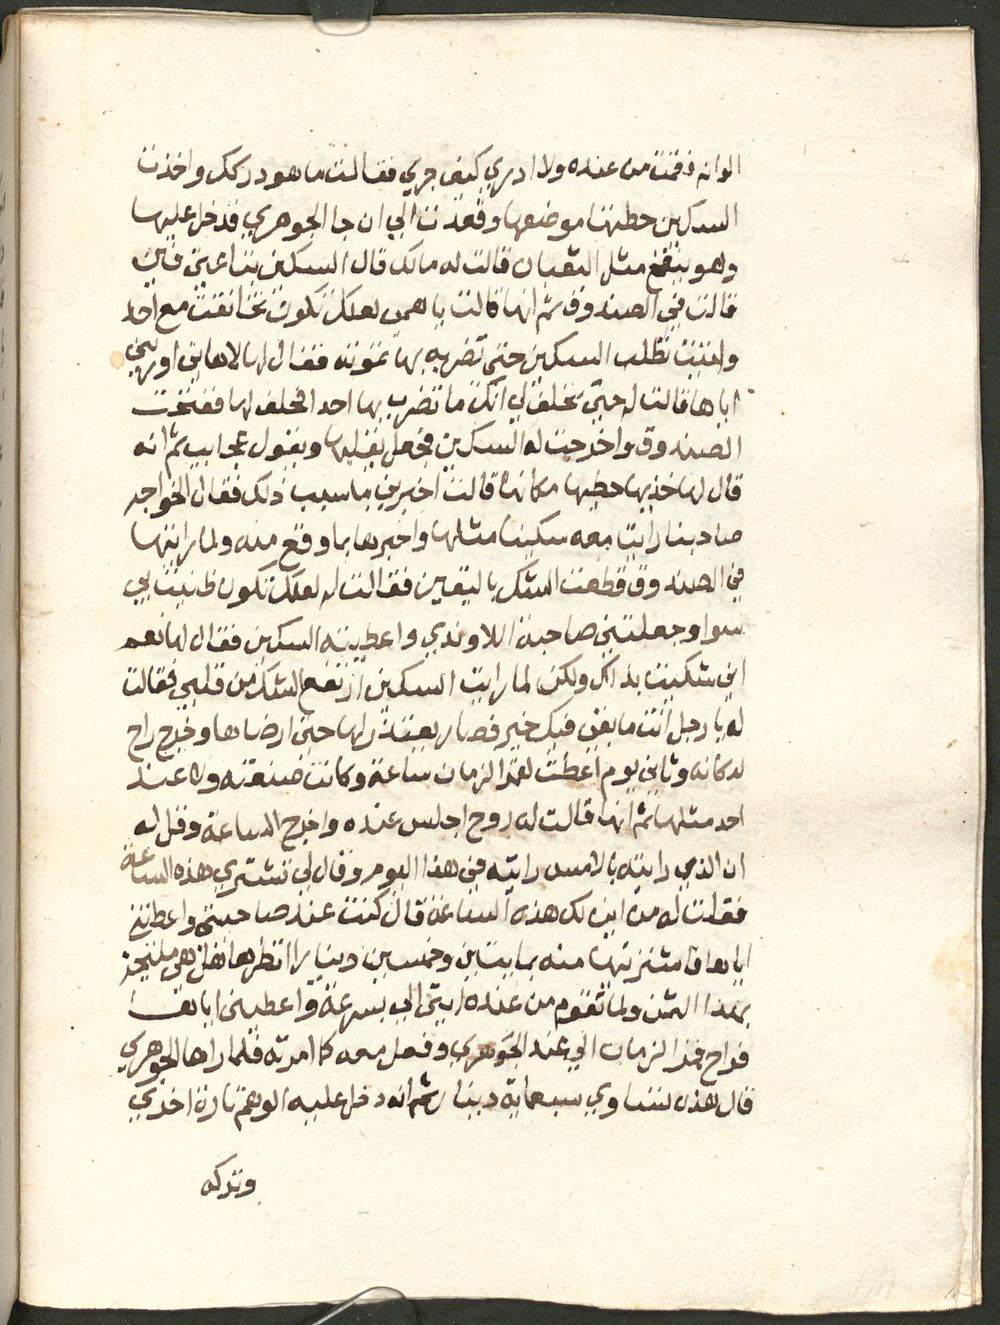 الوانه فقمت من عنده ولا ادري كيف جري فقالت ما هو دركك واخذت
السكين حطتها موضعها وقعدت الي ان جا الجوهري فدخل عليها
وهو ينفخ مثل الثعبان قالت له مالك قال السكين بتاعتي فين
قالت في الصندوق ثم انها قالت ياهمي لعلك تكون تخانقت مع احد
واتيت تطلب السكين حتى تضربه بها تموته فقال لها لا هاتي اوريني
اياها قالت له حتى تحلف لي انك ما تضرب بها احد فحلف لها ففتحت
الصندوق واخرجت له السكين فجعل يقلبها ويقول عجايب ثم انه
قال لها خذيها حطيها مكانها قالت اخبرني ما سبب ذلك فقال الخواجه
صاحبنا رايت معه سكينا مثلها واخبرها بما وقع منه ولما رايتها
في الصندوق قطعت الشك باليقين فقالت له لعلك تكون ظنيت بي
سوا وجعلتني صاحبة اللاوندي واعطيته السكين فقال لها نعم
اني شكيت بذلك ولكن لما رايت السكين ارتفع الشك من قلبي فقالت
له يا رجل انت ما بقى فيك خير فصار يعتذر لها حتى ارضاها وخرج راح
لدكانه وثاني يوم اعطت لقمر الزمان ساعة وكانت صنعته ولا عند
احد مثلها ثم انها قالت له روح اجلس عنده واخرج الساعة وقل له
ان الذي رايته بالامس رايته في هذا اليوم وقال لي تشتري هذه الساعة
فقلت له من اين لك هذه الساعة قال كنت عند صاحبتي واعطتني
اياها فاشتريتها منه بمايتين وخمسين دينارا انظرها هل هي مليحة
بهذا الثمن ولما تقوم من عنده ايتي الي بسرعة واعطيني اياها
فراح قمر الزمان الي عند الجوهري وفعل معه كما امرته فلما راها الجوهري
قال هذه تساوي سبعماية دينار ثم انه دخل عليه الوهم تارة اخري
وتركه